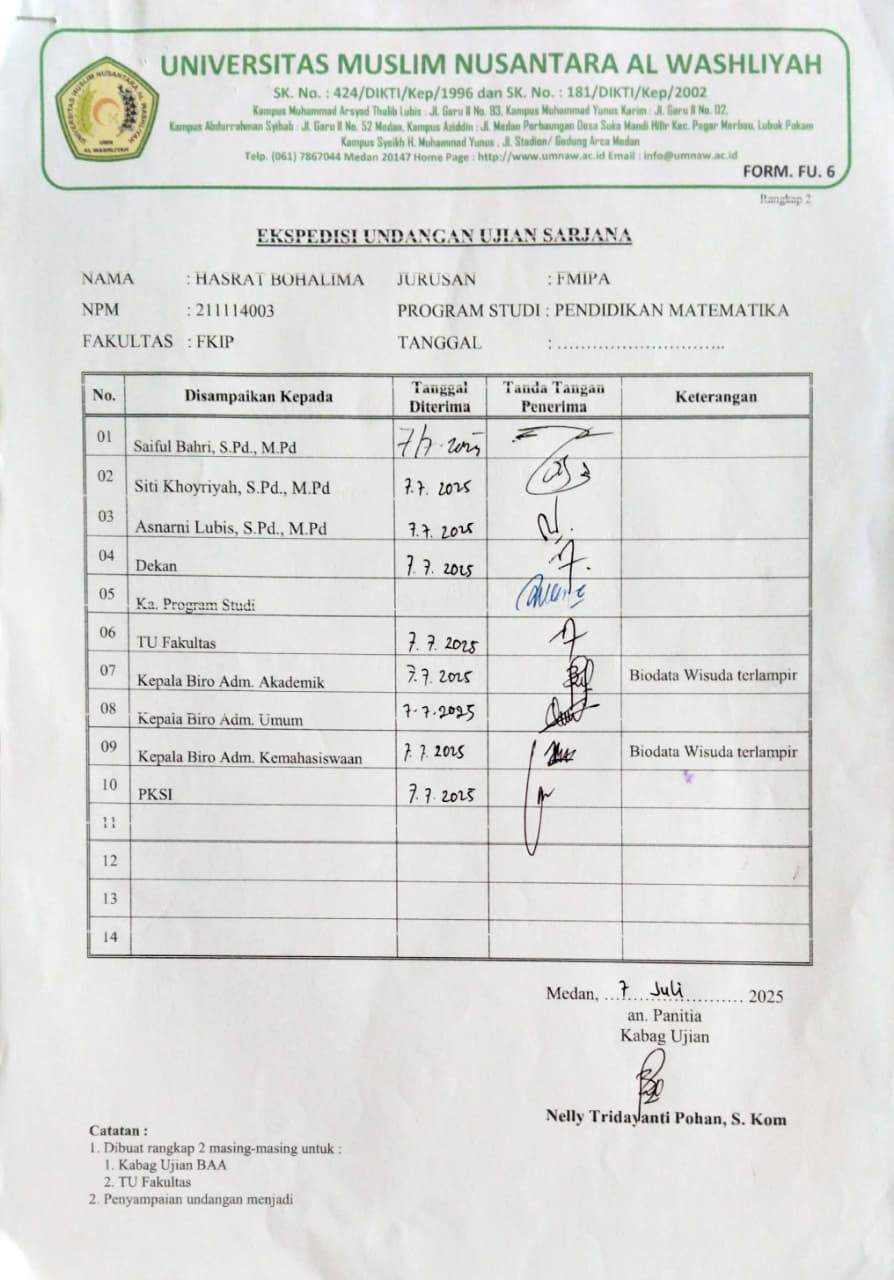 UNIVERSITAS MUSLIM NUSANTARA AL WASHLIYAH
SK. No. : 424/DIKTI/Kep/1996 dan SK. No. : 181/DIKTI/Kep/2002
Kampus Muhammad Arsyad Thalib Lubis : Jl. Garu II No. 93, Kampus Muhammad Yunus Karim : Jl. Garu II No. 02,
Kampus Abdurrahman Syihab : Jl. Garu II No. 52 Medan, Kampus Aziddin : Jl. Medan Perbaungan Desa Suka Mandi Hilir Kec. Pagar Merbau, Lubuk Pakam
Kampus Syeikh H. Muhammad Yunus , Jl. Stadion/ Gedung Arca Medan
Telp. (061) 7867044 Medan 20147 Home Page : http://www.umnaw.ac.id Email : info@umnaw.ac.id
UNIVERSITAS MUSLIM NUSANTARA AL WASHLIYAH
UMN
AL WASHLIYAH
FORM. FU. 6
Rangkap 2
EKSPEDISI UNDANGAN UJIAN SARJANA
NAMA : HASRAT BOHALIMA JURUSAN : FMIPA
NPM : 211114003 PROGRAM STUDI : PENDIDIKAN MATEMATIKA
FAKULTAS : FKIP TANGGAL : ............................
No. Disampaikan Kepada Tanggal Diterima Tanda Tangan Penerima Keterangan
01 Saiful Bahri, S.Pd., M.Pd 7/7-2025
02 Siti Khoyriyah, S.Pd., M.Pd 7.7. 2025
03 Asnarni Lubis, S.Pd., M.Pd 7.7. 2025
04 Dekan 7. 7. 2025
05 Ka. Program Studi
06 TU Fakultas 7. 7. 2025
07 Kepala Biro Adm. Akademik 7.7. 2025 Biodata Wisuda terlampir
08 Kepala Biro Adm. Umum 7-7-2025
09 Kepala Biro Adm. Kemahasiswaan 7. 7. 2025 Biodata Wisuda terlampir
10 PKSI 7. 7. 2025
11
12
13
14
Medan, ...7 Juli............ 2025
an. Panitia
Kabag Ujian
Nelly Tridayanti Pohan, S. Kom
Catatan :
1. Dibuat rangkap 2 masing-masing untuk :
1. Kabag Ujian BAA
2. TU Fakultas
2. Penyampaian undangan menjadi